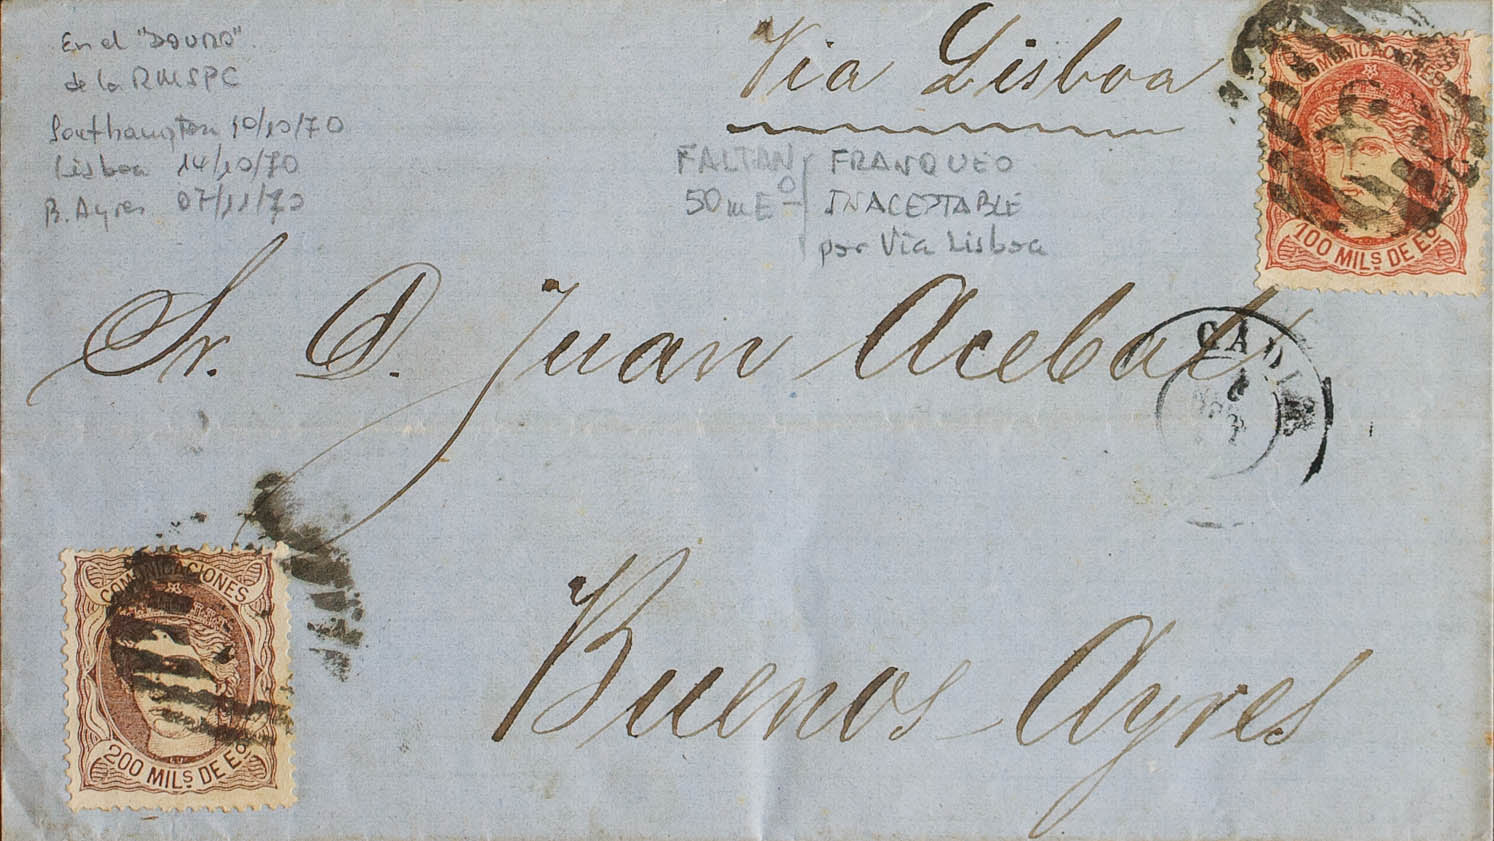 En el "DOURO"
de la RMSPC
Southampton 10/10/70
Lisboa 14/10/70
B. Ayres 07/11/70
Via Lisboa
FALTAN
50 mEº
FRANQUEO
INACEPTABLE
por Via Lisboa
COMUNICACIONES
100 MILS DE Eº
Sr. D. Juan Acebal
CADIZ
Buenos Ayres
COMUNICACIONES
200 MILS DE Eº